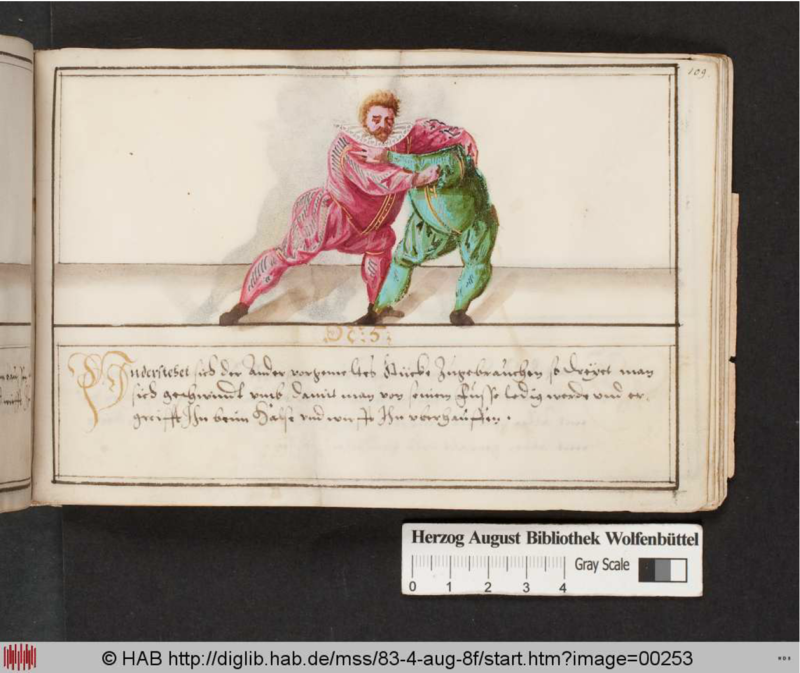 109
N: 5:
Understehet sich der Ander vorgemeltes Stücke Zugebrauchen so dreÿet man
sich geschwindt umb damit man von seinem Fusse ledig werde und er-
greifft Ihn beim Halse und Ihn uberhauffen.
Herzog August Bibliothek Wolfenbüttel
Gray Scale
0 1 2 3 4
© HAB http://diglib.hab.de/mss/83-4-aug-8f/start.htm?image=00253